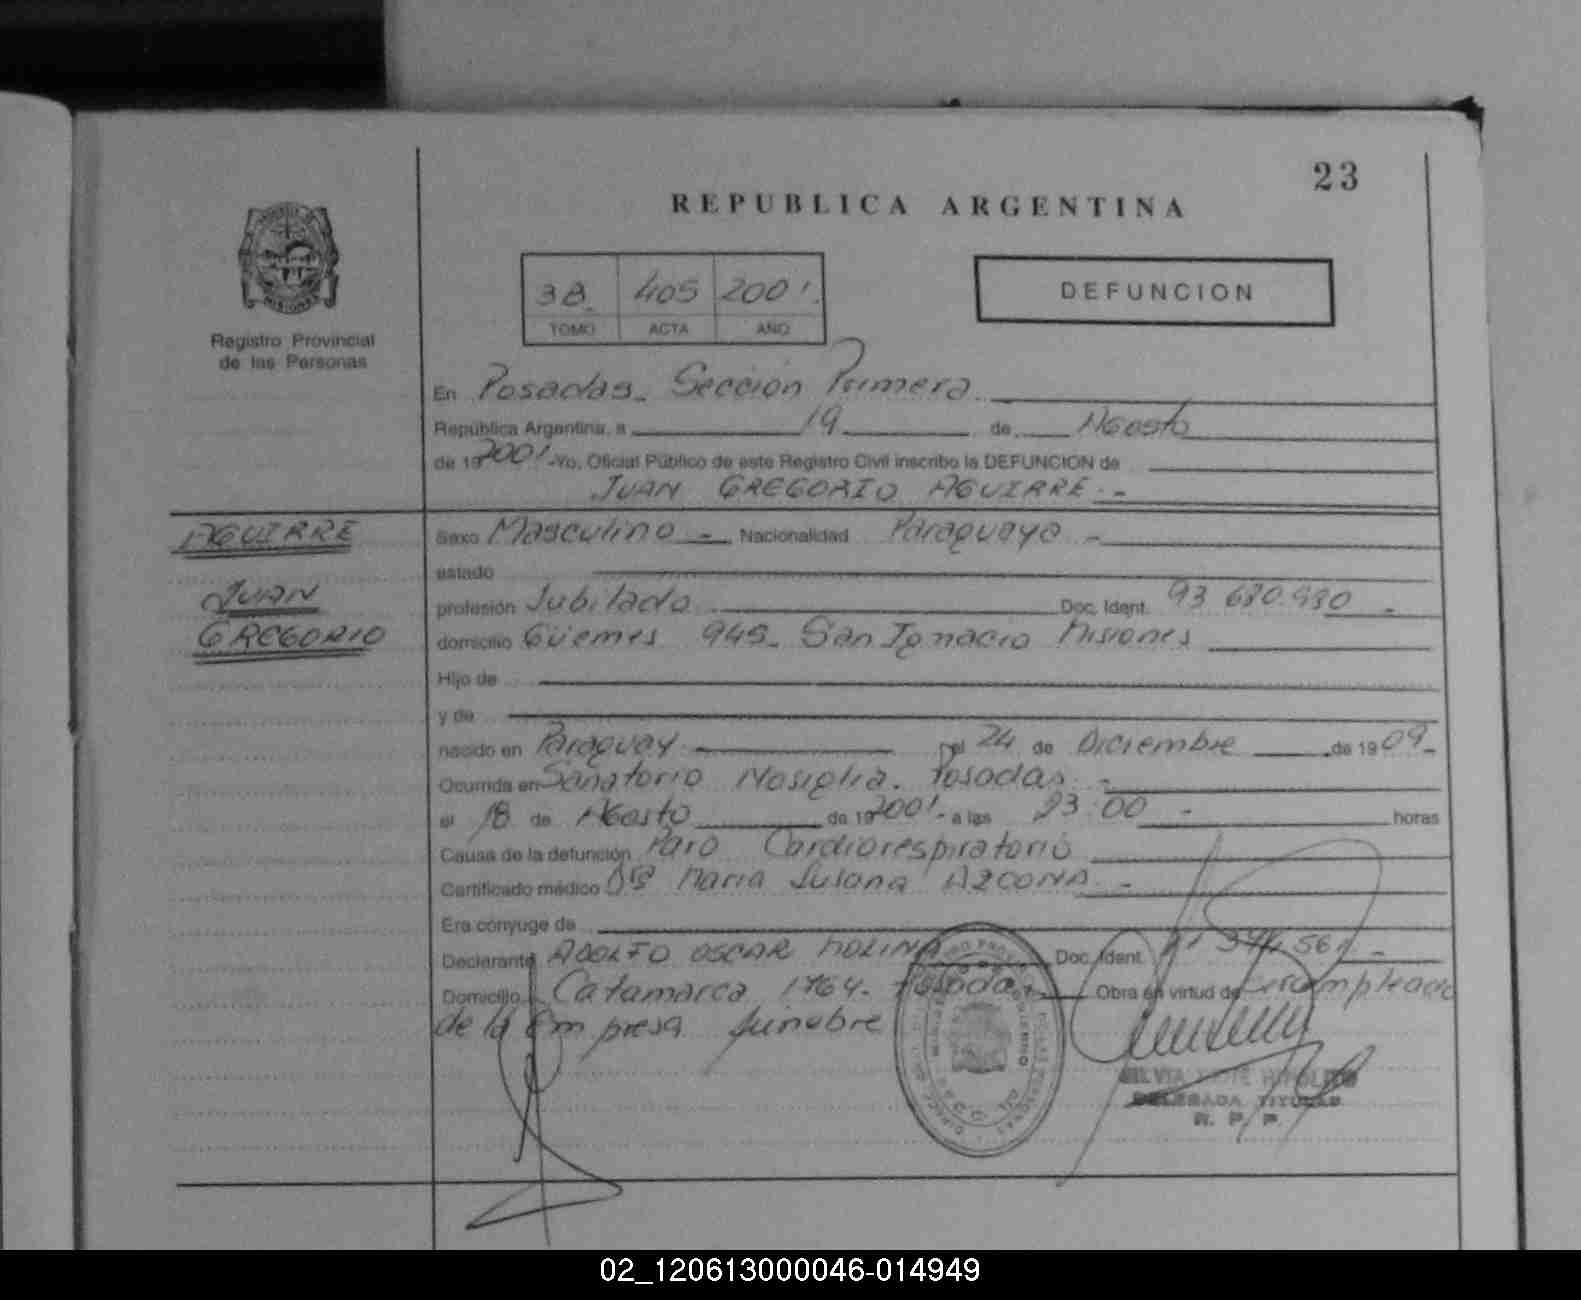 23
REPUBLICA ARGENTINA
MISIONES
Registro Provincial
de las Personas
38 405 2001.
TOMO ACTA AÑO
DEFUNCION
En Posadas. Sección Primera
República Argentina, a 19 de Agosto
de 19 2001 -Yo, Oficial Público de este Registro Civil inscribo la DEFUNCION de
JUAN GREGORIO AGUIRRE.-
AGUIRRE
JUAN
GREGORIO
Sexo Masculino - Nacionalidad Paraguaya -
estado
profesión Jubilado Doc. Ident. 93 680.980 -
domicilio Güemes 945. San Ignacio Misiones
Hijo de
y de
nacido en Paraguay el 24 de Diciembre de 19 09-
Ocurrida en Sanatorio Nosiglia. Posadas -
el 18 de Agosto de 19 2001- a las 23:00 - horas
Causa de la defunción Paro Cardiorespiratorio
Certificado médico Dra Maria Susana AZCONA. -
Era cónyuge de
Declarante ADOLFO OSCAR MOLINA Doc. Ident.
Domicilio Catamarca 1764. Posadas Obra en virtud de ser empleado
de la Empresa fúnebre
SILVIA
DELEGADA TITULAR
R. P. P.
02_120613000046-014949